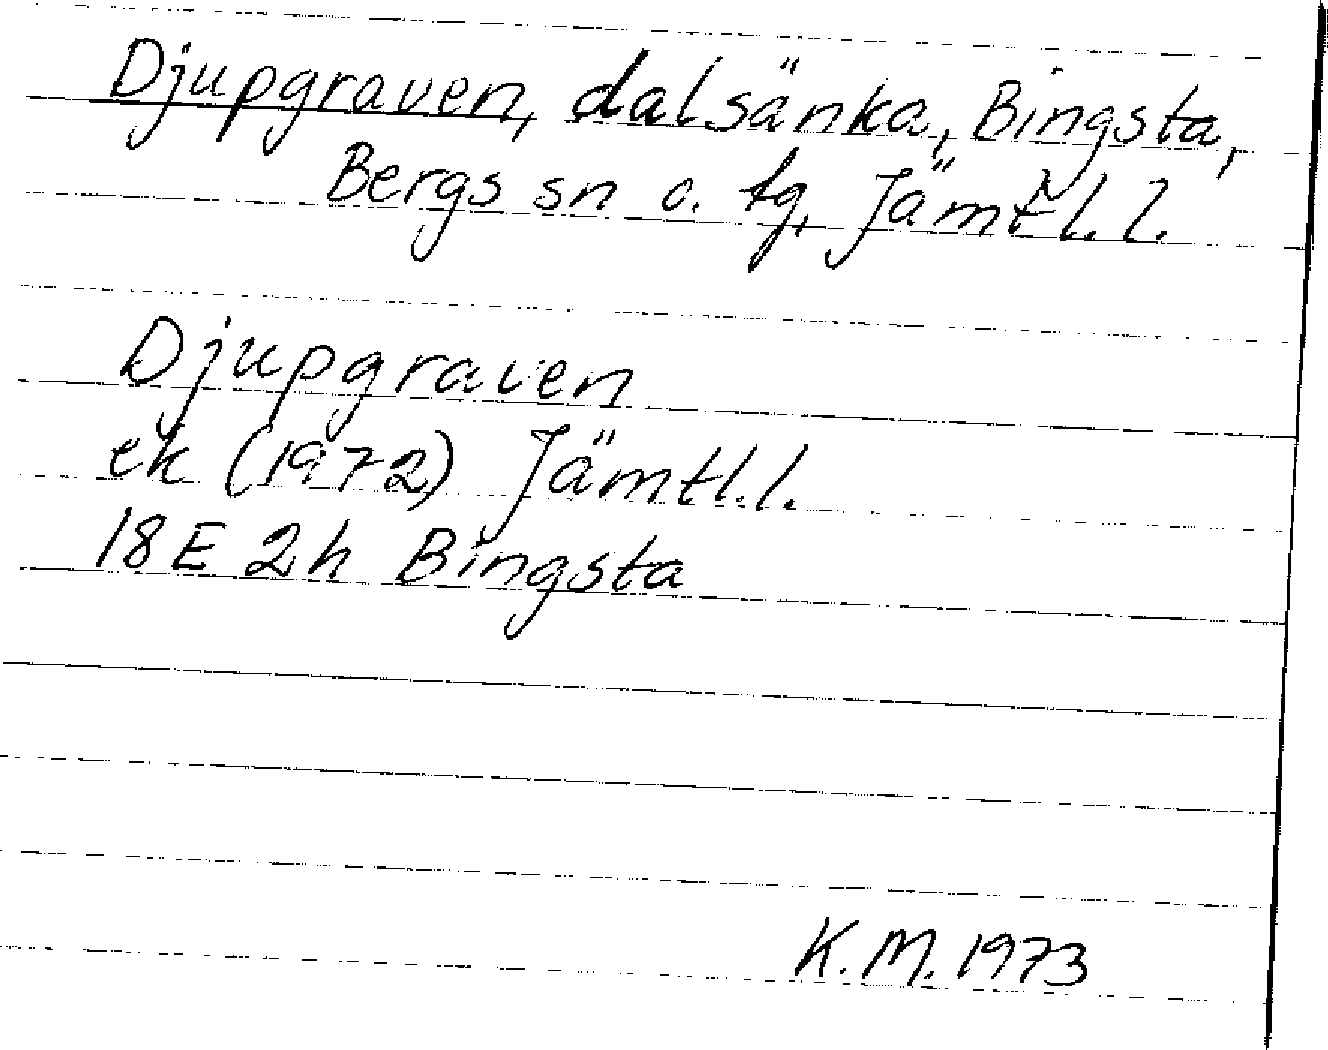 Djupgraven, dalsänka, Bingsta,
Bergs sn o. tg, Jämtl. l.
Djupgraven
ek (1972) Jämtl. l.
18E 2h Bingsta
K.M. 1973